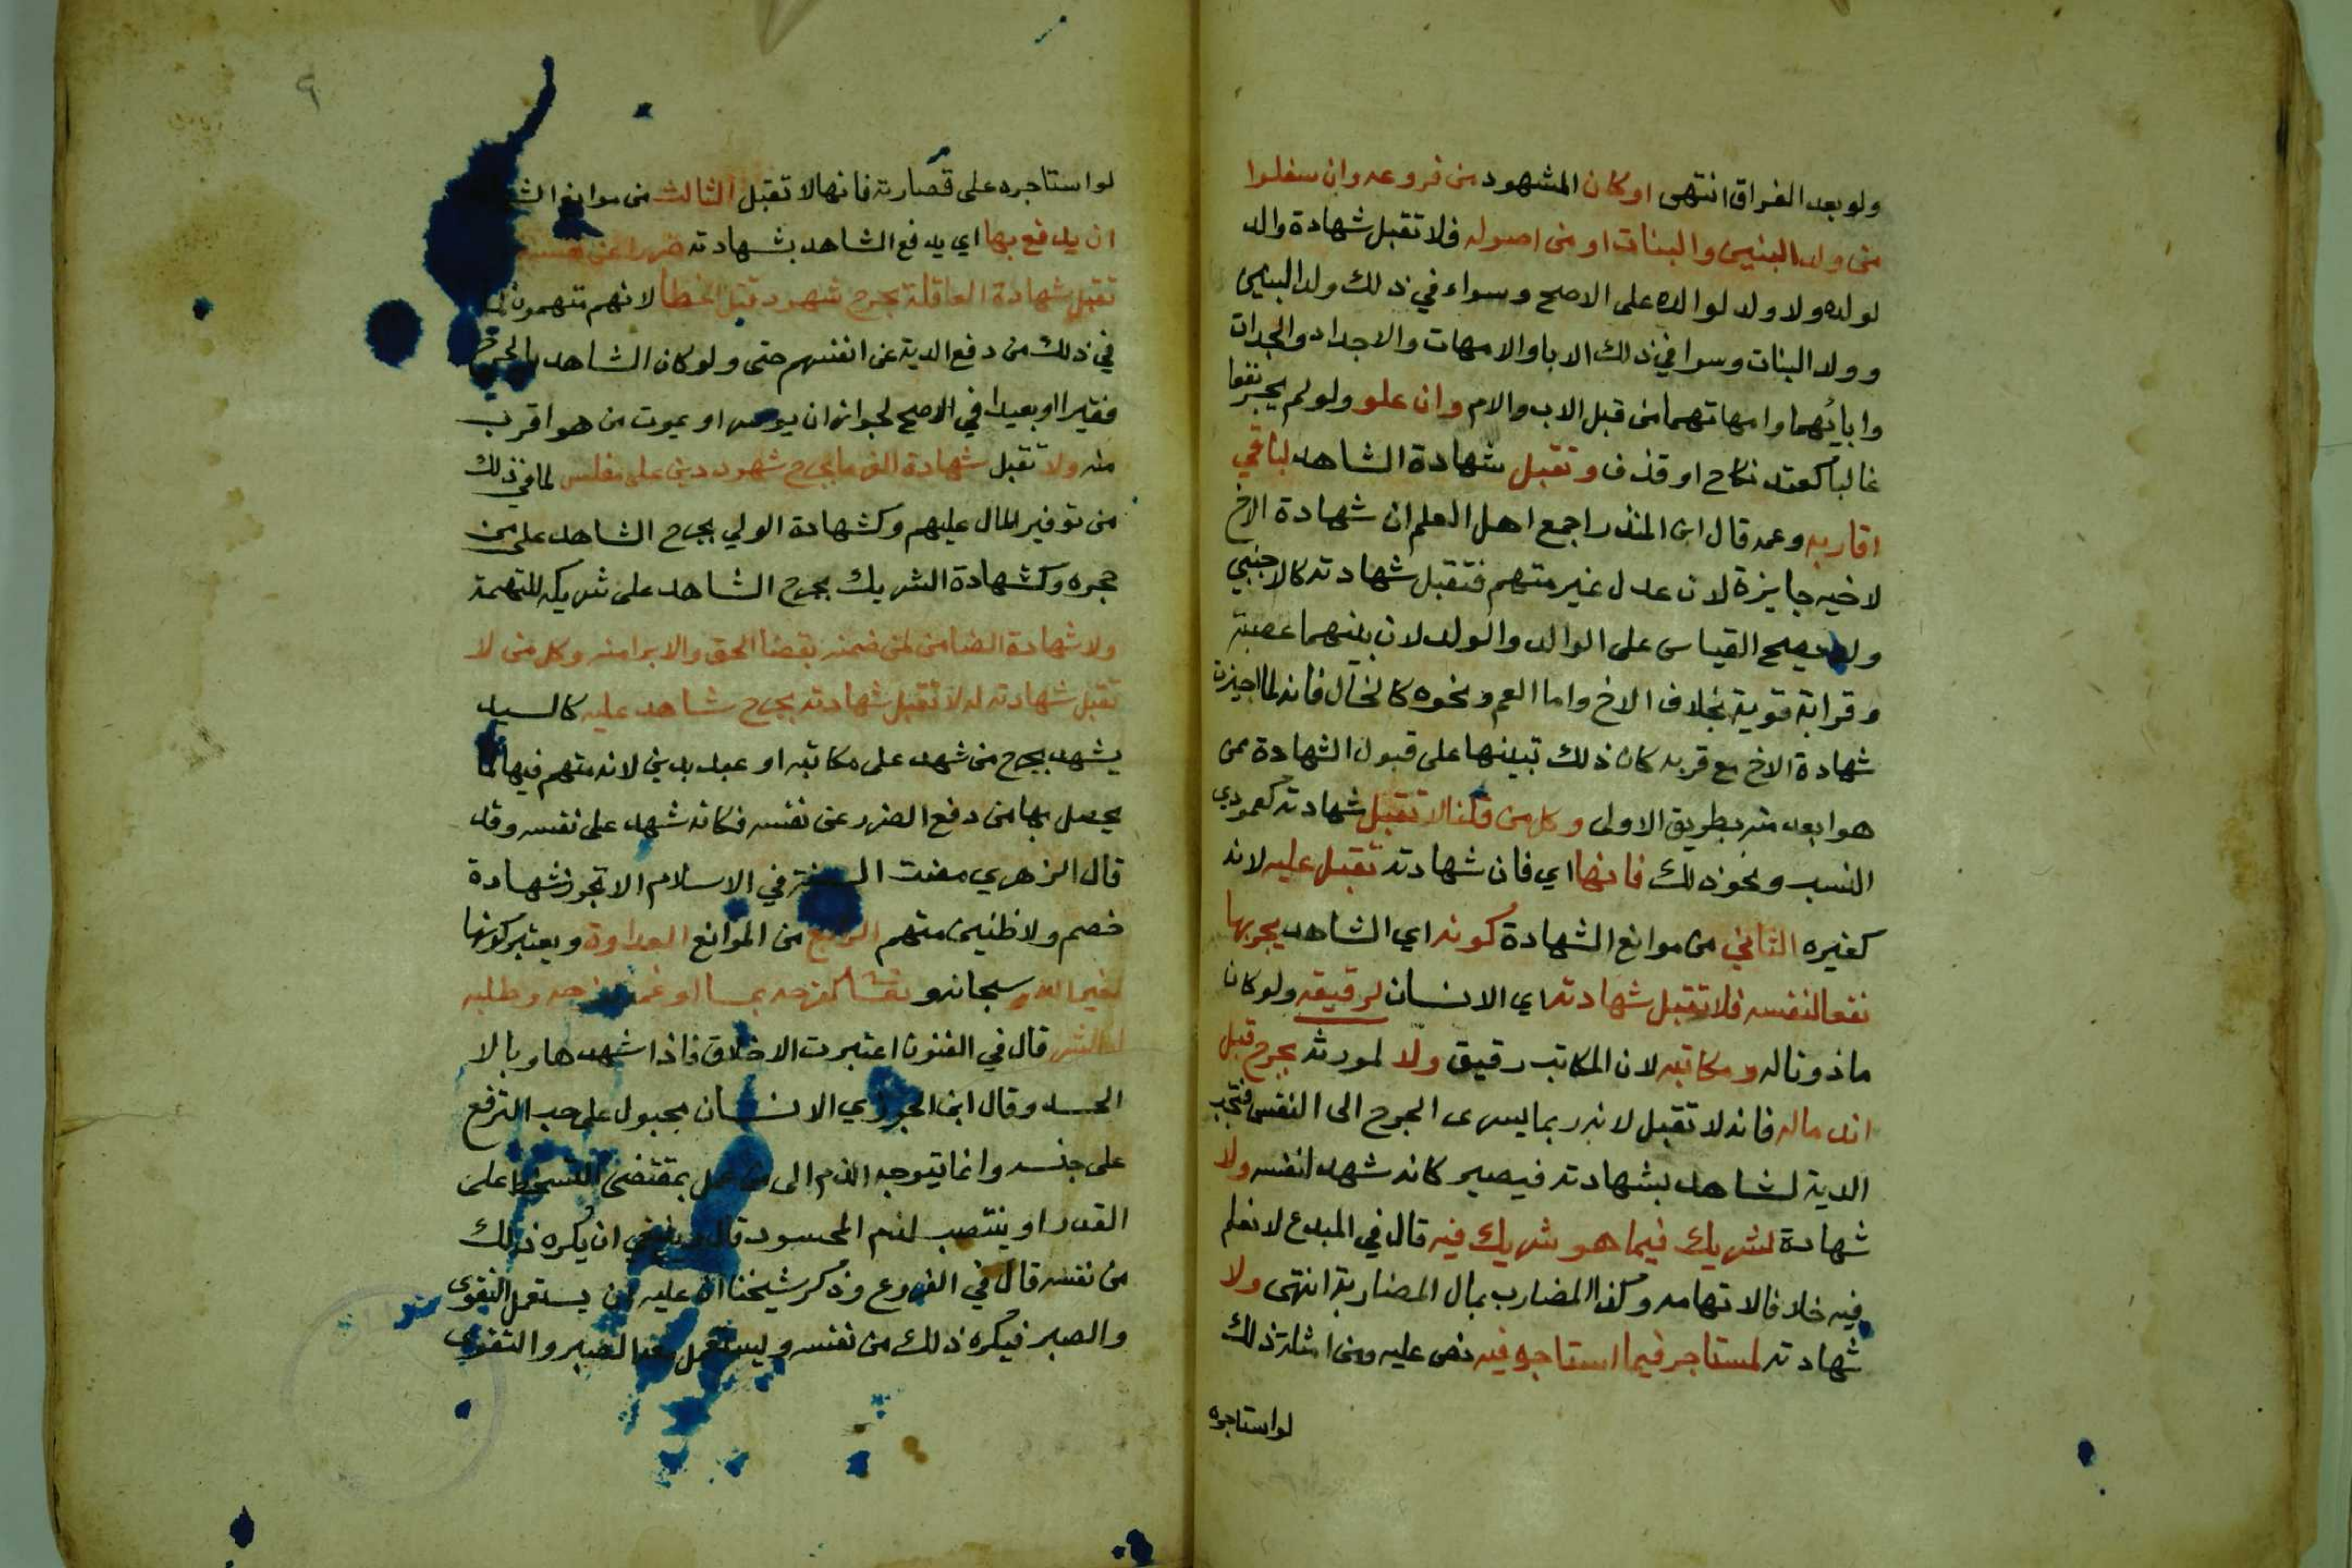 ولو بعد الفراق انتهى او كان المشهود من فروعه وان سفلوا
من ولد البنين والبنات او من اصوله فلا تقبل شهادة والد
لولده ولا ولد لوالده على الاصح وسواء في ذلك ولد البنين
وولد البنات وسوا في ذلك الابا والامهات والاجداد والجدات
وابائهما وامهاتهما من قبل الاب والام وان علو ولو لم يجر نفعا
غالبا كعقد نكاح او قذف وتقبل شهادة الشاهد لباقي
اقاربه وعمه قال ابن المنذر اجمع اهل العلم ان شهادة الاخ
لاخيه جايزة لان عدل غير متهم فتقبل شهادته كالاجنبي
ولا يصح القياس على الوالد والولد لان بينهما عصبة
وقرابة قوية بخلاف الاخ واما العم ونحوه كالخال فانه لما اجيزت
شهادة الاخ مع قربه كان ذلك تبينها على قبول الشهادة ممن
هو ابعد منه بطريق الاولى وكل من قلنا لا تقبل شهادته كعمودي
النسب ونحو ذلك فانها اي فان شهادته تقبل عليه لانه
كغيره الثاني من موانع الشهادة كونه اي الشاهد يجر بها
نفعا لنفسه فلا تقبل شهادته اي الانسان لرقيقه ولو كان
ماذونا له ومكاتبه لان المكاتب رقيق ولا لمورثه بجرح قبل
اندماله فانه لا تقبل لانه ربما يسرى الجرح الى النفس فتجب
الدية لشاهد بشهادته فيصير كانه شهد لنفسه ولا
شهادة لشريك فيما هو شريك فيه قال في المبدع لا نعلم
فيه خلافا لاتهامه وكذا المضارب بمال المضاربة انتهى ولا
شهادته لمستاجر فيما استاجره فيه نص عليه ومن امثلة ذلك
لو استاجره
٩
لو استاجره على قصارته فانها لا تقبل الثالث من موانع
ان يدفع بها اي يدفع الشاهد بشهادته ضررا عن نفسه
تقبل شهادة العاقلة بجرح شهود قتل الخطا لانهم متهمون
في ذلك من دفع الدية عن انفسهم حتى ولو كان الشاهد بالجرح
فقيرا او بعيدا في الاصح لجواز ان يوسر او يموت من هو اقرب
منه ولا تقبل شهادة الغرما بجرح شهود دين على مفلس لما في ذلك
من توفير المال عليهم وكشهادة الولي بجرح الشاهد على من
حجره وكشهادة الشريك بجرح الشاهد على شريكه للتهمة
ولا شهادة الضامن لمن ضمنه بقضا الحق والابرا منه وكل من لا
تقبل شهادته له لا تقبل شهادته بجرح شاهد عليه كالسيد
يشهد بجرح من شهد على مكاتبه او عبده بدين لانه متهم فيها لما
يحصل بها من دفع الضرر عن نفسه فكانه شهد على نفسه وقد
قال الزهري مضت السنة في الاسلام الا تجوز شهادة
خصم ولا ظنين متهم الرابع من الموانع العداوة ويعتبر كونها
لغير الله سبحانه و كفرحه بمسا او غمه وطلبه
له الشر قال في الفنون اعتبرت الاخلاق فاذا اشهدها وبالا
الحسد وقال ابن الجوزي الانسان مجبول على حب الترفع
على جنسه وانما يتوجه الذم الى من عمل بمقتضى التسخط على
القدر او ينتصب لذم المحسود قال وينبغي ان يكره ذلك
من نفسه قال في الفروع وذكر شيخنا ان عليه ان يستعمل التقوى
والصبر فيكره ذلك من نفسه ويستعمل معه الصبر والتقوى